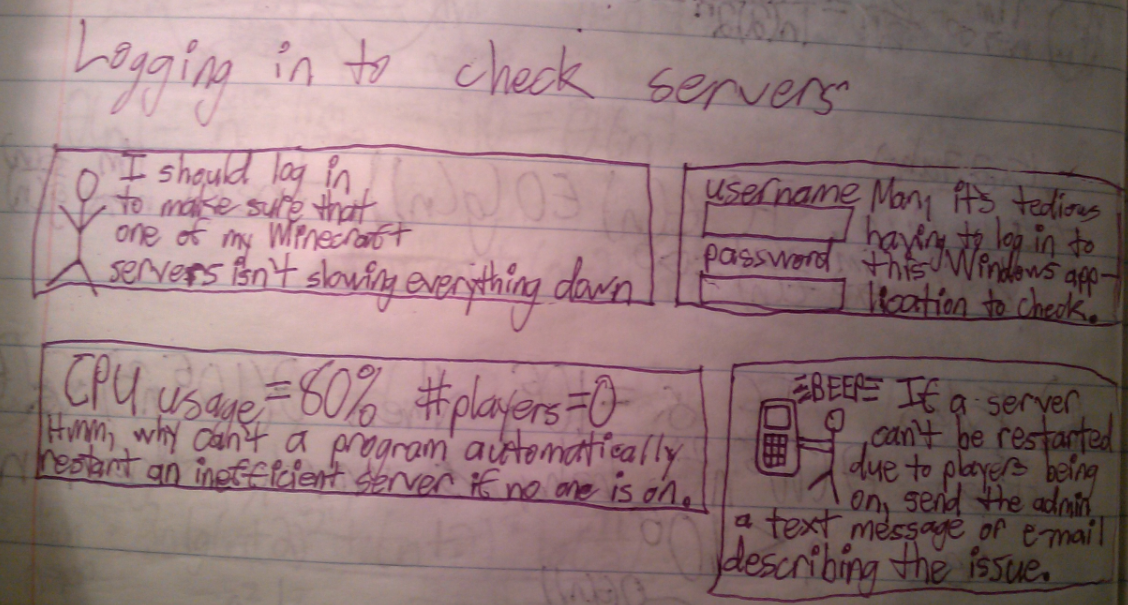 Logging in to check servers
I should log in
to make sure that
one of my Minecraft
servers isn't slowing everything down
username
password
Man, it's tedious
having to log in to
this Windows app-
lication to check.
CPU usage=80% #players=0
Hmm, why can't a program automatically
restart an inefficient server if no one is on.
=BEEP= If a server
can't be restarted
due to players being
on, send the admin
a text message or e-mail
describing the issue.